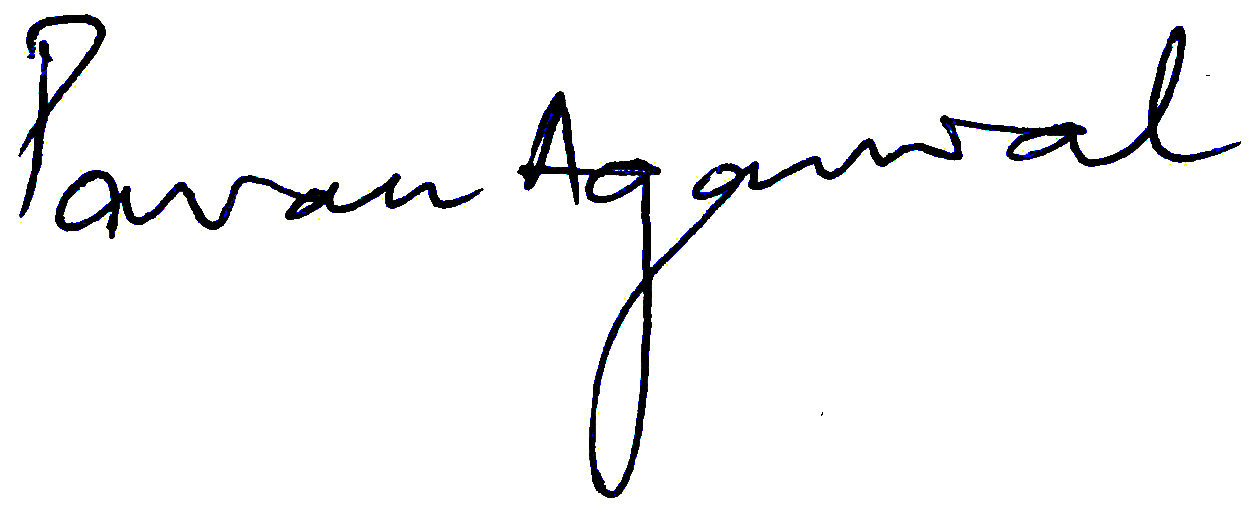 Pavan Agarwal